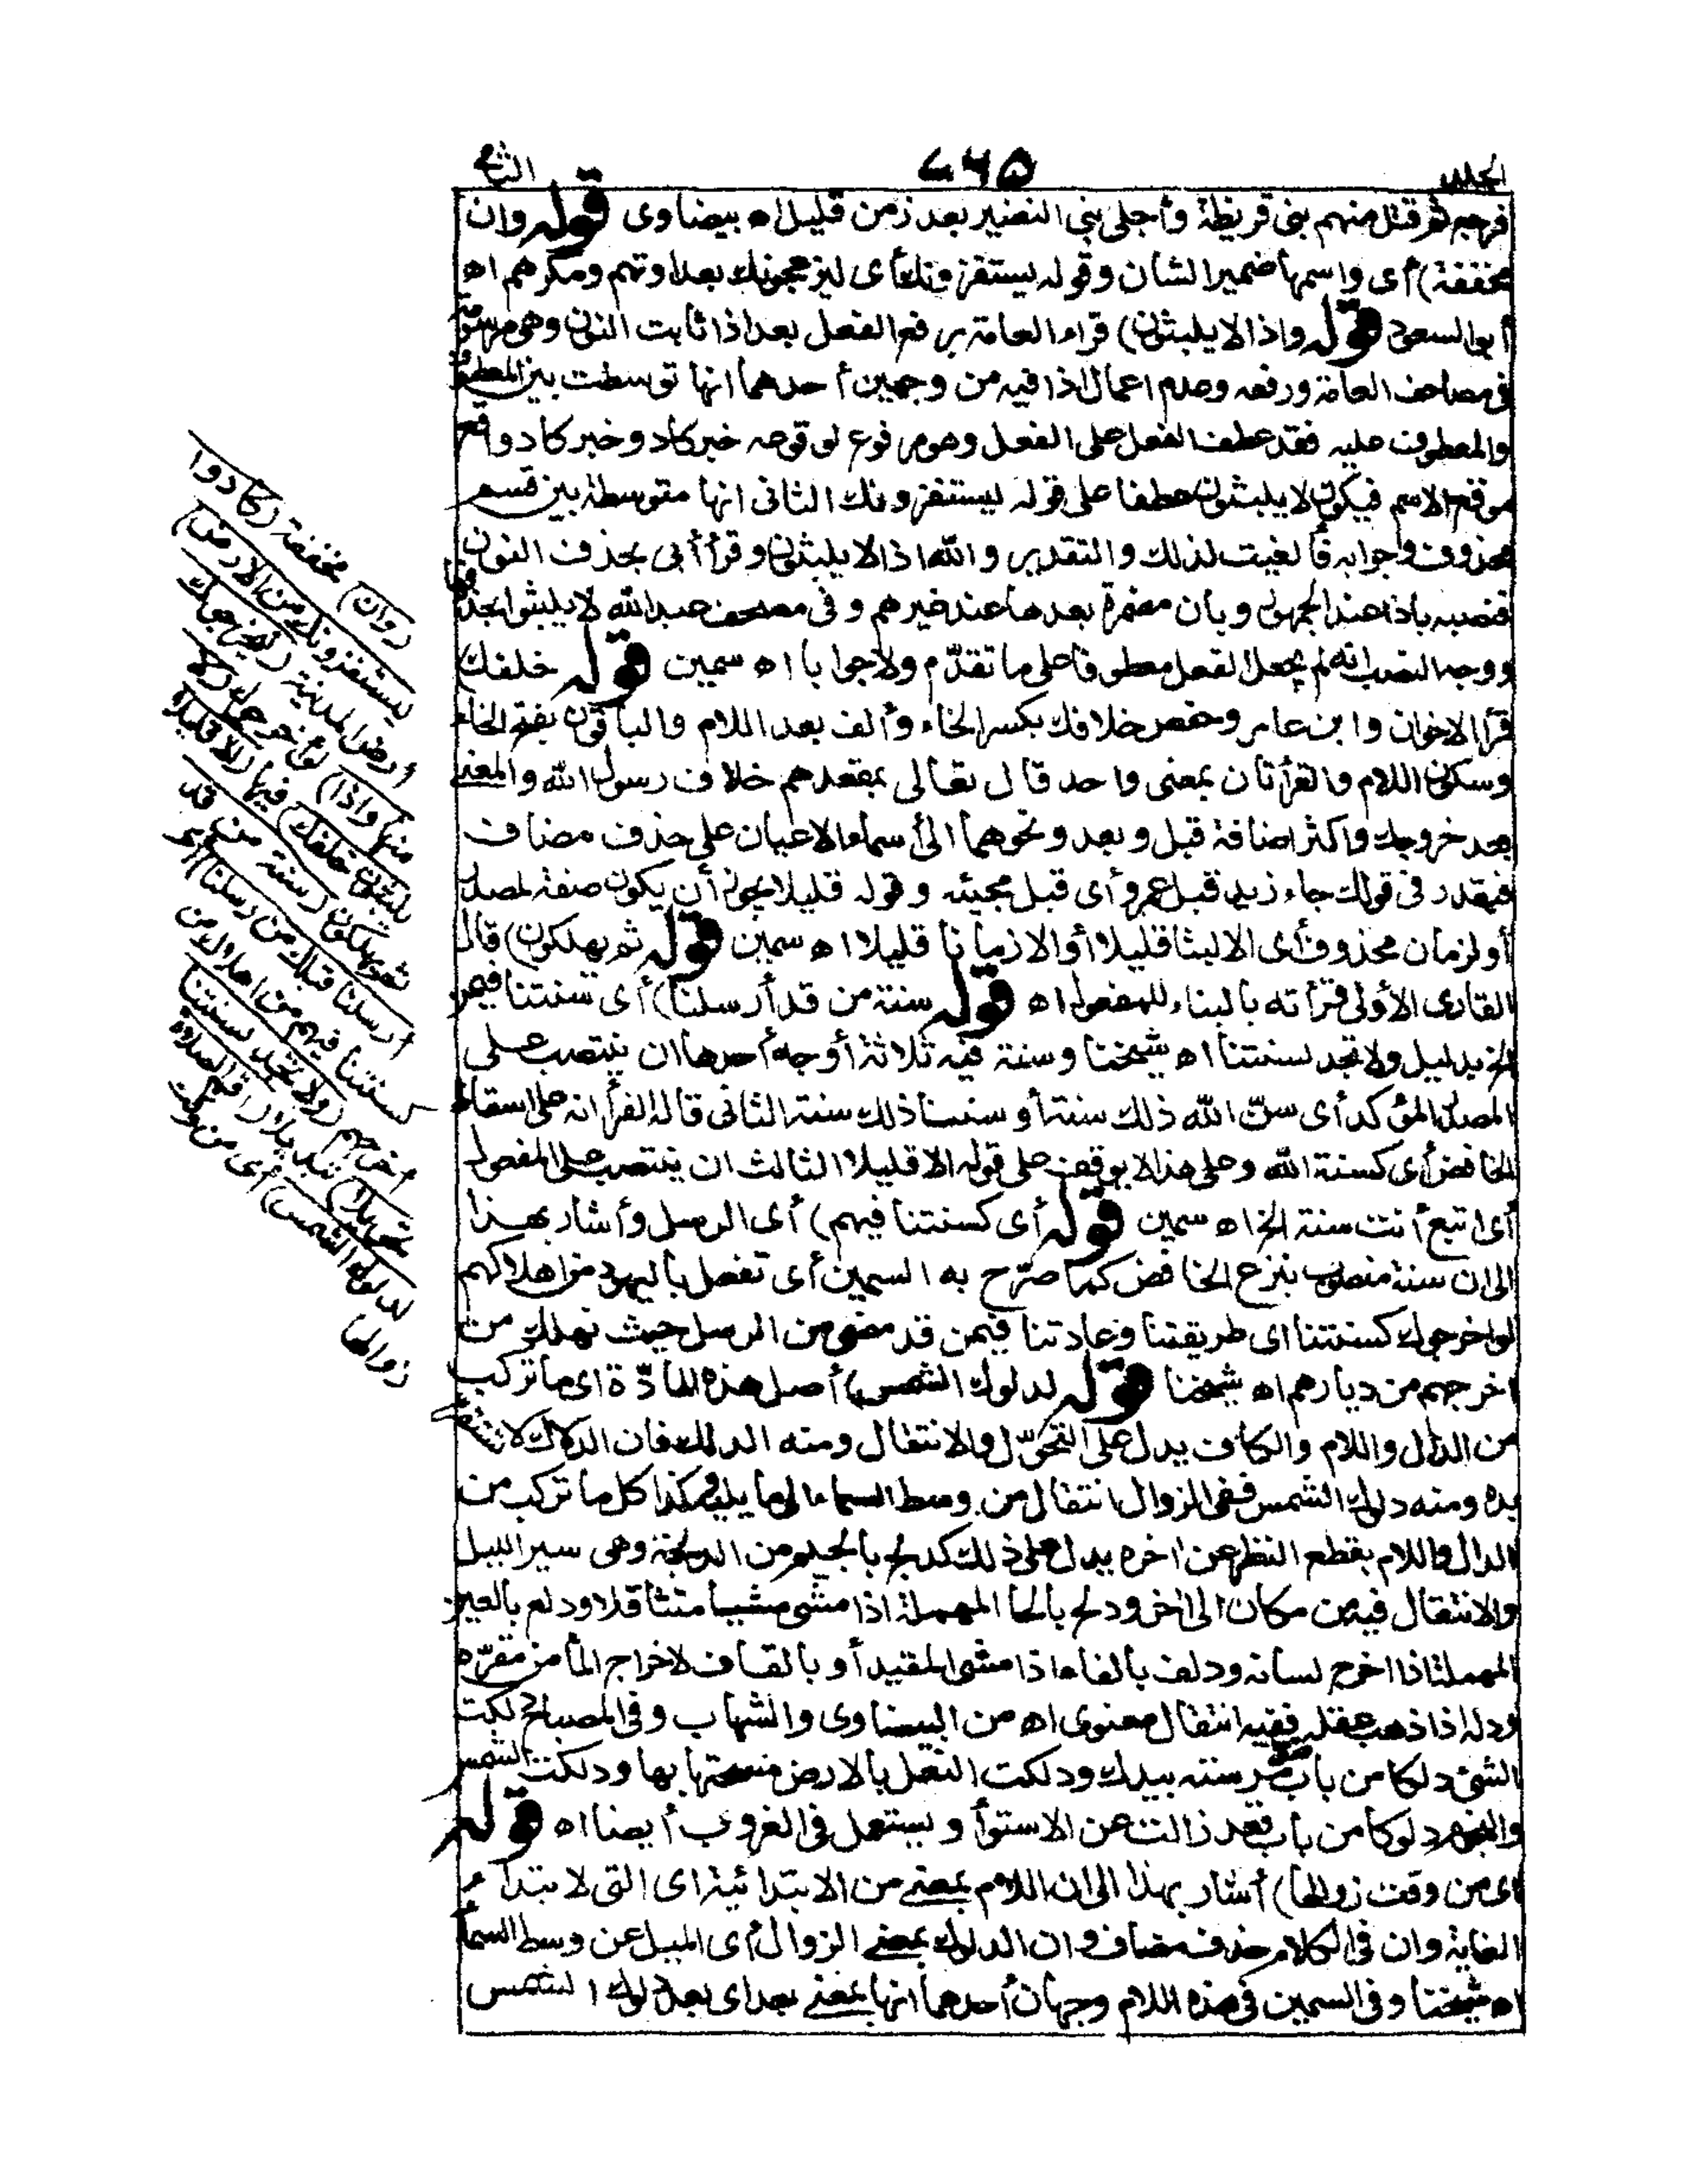 الجلد
٢٦٥
الثانی
فرجع ثم قتل منهم بنی قریظة وأجلی بنی النضیر بعد زمن قلیل اه بیضاوی قوله وان
مخففة) أی واسمها ضمیر الشان وقوله لیستفزونك أی لیزعجونك بعداوتهم ومکرهم اه
أبو السعود قوله واذا لا یلبثون) قراءة العامة برفع الفعل بعد اذا ثابت النون وهی مرسومة
فی مصاحف العامة ورفعه وعدم اعمال اذا فیه من وجهین أحدهما انها توسطت بین المعطوف
والمعطوف علیه فقد عطف الفعل علی الفعل وهو مرفوع لوقوعه خبر کاد وخبر کاد واقع
موقع الاسم فیکون لا یلبثون عطفا علی قوله لیستفزونك الثانی انها متوسطة بین قسم
محذوف وجوابه فألغیت لذلك والتقدیر والله اذا لا یلبثون وقرأ أبی بحذف النون
فنصبه باذا عند الجمهور وبان مضمرة بعدها عند غیرهم وفی مصحف عبد الله لا یلبثوا بحذفها
ووجه النصب انه لم یجعل الفعل معطوفا علی ما تقدّم ولا جوابا اه سمین قوله خلفك)
قرأ الاخوان وابن عامر وحفص خلافك بکسر الخاء وألف بعد اللام والباقون بفتح الخاء
وسکون اللام والقرأتان بمعنی واحد قال تعالی بمقعدهم خلاف رسول الله والمعنی
بعد خروجك واکثر اضافة قبل وبعد ونحوهما الی أسماء الاعیان علی حذف مضاف
فیقدر فی قولك جاء زید قبل عمرو أی قبل مجیئه وقوله قلیلا یجوز أن یکون صفة لمصدر
أو لزمان محذوف أی الا لبثا قلیلا أو الا زمانا قلیلا اه سمین قوله ثم یهلکون) قال
القاری الأولی قرأته بالبناء للمفعول اه قوله سنة من قد أرسلنا) أی سنتنا فیهم
الخ بدلیل ولا تجد لسنتنا اه شیخنا وسنة فیه ثلاثة أوجه أحدها ان ینتصب علی
المصدر المؤکد أی سنّ الله ذلك سنة أو سننا ذلك سنة الثانی قاله الفرأ انه علی اسقاط
الخافض أی کسنة الله وعلی هذا لا یوقف علی قوله الا قلیلا الثالث ان ینتصب علی المفعول
أی اتبع أنت سنة الخ اه سمین قوله أی کسنتنا فیهم) أی الرسل وأشار بهذا
الی ان سنة منصوب بنزع الخافض کما صرّح به السمین أی تفعل بالیهود من اهلاکهم
لو اخرجوك کسنتنا ای طریقتنا وعادتنا فیمن قد مضی من الرسل حیث نهلك من
اخرجهم من دیارهم اه شیخنا قوله لدلوك الشمس) أصل هذه المادّة ای ما ترکب
من الدال واللام والکاف یدل علی التحوّل والانتقال ومنه الدلك فان الدلاك لا تستقر
یده ومنه دلوك الشمس ففی الزوال انتقال من وسط السماء الی ما یلیه وکذا کل ما ترکب من
الدال واللام بقطع النظر عن اخره یدل علی ذلك کدلج بالجیم من الدلجة وهی سیر اللیل
والانتقال فیه من مکان الی اخر ودلح بالحا المهملة اذا مشی مشیا متثاقلا ودلع بالعین
المهملة اذا اخرج لسانه ودلف بالفاء اذا مشی المقید أو بالقاف لاخراج الما من مقرّه
ودله اذا ذهب عقله ففیه انتقال معنوی اه من البیضاوی والشهاب وفی المصباح دلکت
الشئ دلکا من باب مرسته بیدك ودلکت النعل بالارض مسحتها بها ودلکت الشمس
والنجوم دلوکا من باب قعد زالت عن الاستوأ ویستعمل فی الغروب أیضا اه قوله
ای من وقت زوالها) أشار بهذا الی ان اللام بمعنی من الابتدائیة ای التی لابتداء
الغایة وان فی الکلام حذف مضاف وان الدلوك بمعنی الزوال أی المیل عن وسط السمأ
اه شیخنا وفی السمین فی هذه اللام وجهان أحدهما انها بمعنی بعد ای بعد دلوك الشمس
(وان) مخففة (کادوا
لیستفزونك من الارض)
أرض المدینة (لیخرجوك
منها واذا) لو أخرجوك (لا
یلبثون خلفك) فیها (الا قلیلا)
ثم یهلکون (سنة من قد
أرسلنا قبلك من رسلنا) أی
کسنتنا فیهم من اهلاك من
أخرجهم (ولا تجد لسنتنا
تحویلا) تبدیلا (اقم الصلاة
لدلوك الشمس) أی من وقت
زوالها